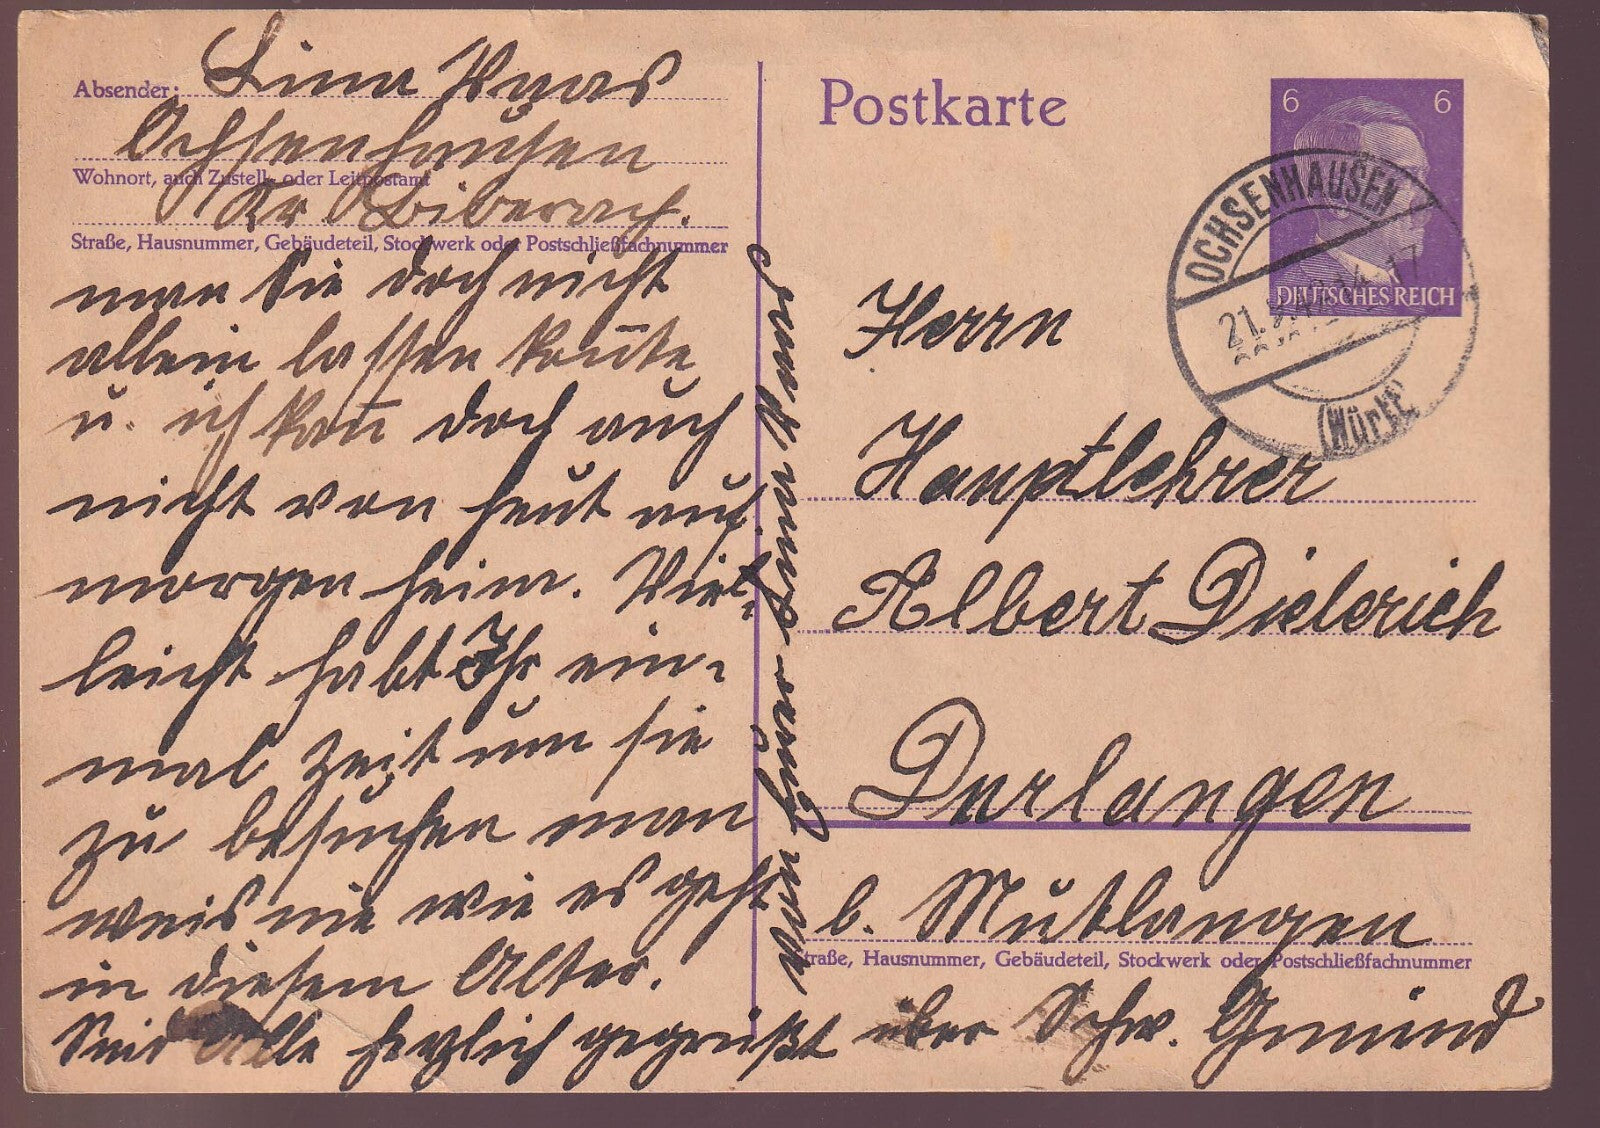 Absender: Lina Maas
Ochsenhausen
Wohnort, auch Zustell- oder Leitpostamt
Kr Biberach.
Straße, Hausnummer, Gebäudeteil, Stockwerk oder Postschließfachnummer
man Sie doch nicht
allein lassen kon̄te
u. ich kan̄ doch auch
nicht von heut auf
morgen heim. Viel-
leicht habt Ihr ein-
mal Zeit um sie
zu besuchen man
weis nie wie es geht
in diesem Alter.
Seid Alle herzlich gegrüßt
von Eurer Lina und
Postkarte
6 6
DEUTSCHES REICH
OCHSENHAUSEN
21. 17
(Württ)
Herrn
Hauptlehrer
Albert Dielerich
Durlangen
b. Mutlangen
Straße, Hausnummer, Gebäudeteil, Stockwerk oder Postschließfachnummer
über Schw. Gmünd